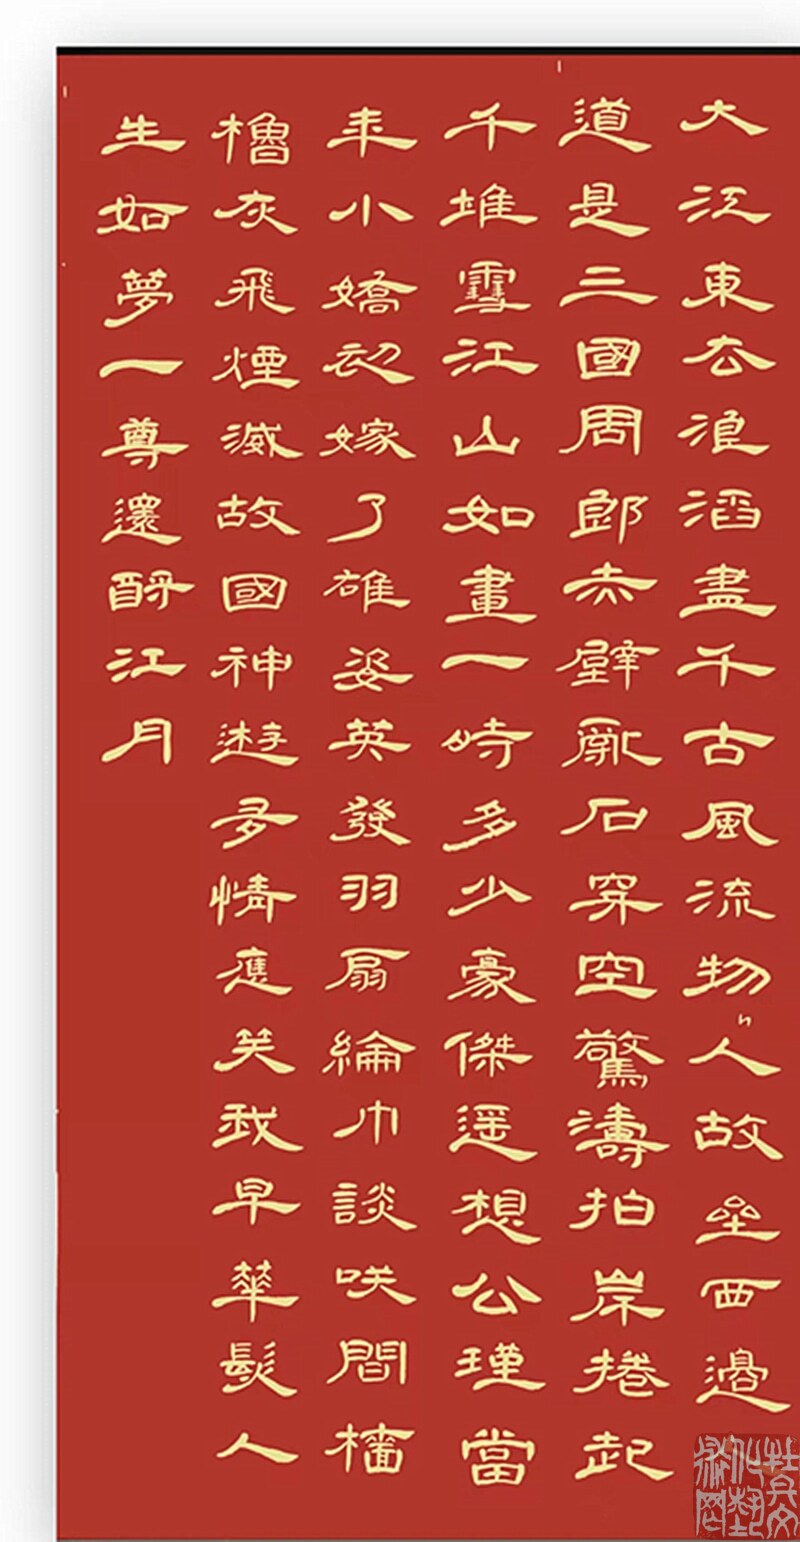 大江東去浪滔盡千古風流物人故壘西邊
道是三國周郎赤壁亂石穿空驚濤拍岸捲起
千堆雪江山如畫一時多少豪傑遥想公瑾當
年小嬌初嫁了雄姿英發羽扇綸巾談咲間檣
櫓灰飛煙滅故國神遊多情應笑我早華髮人
生如夢一尊還酹江月